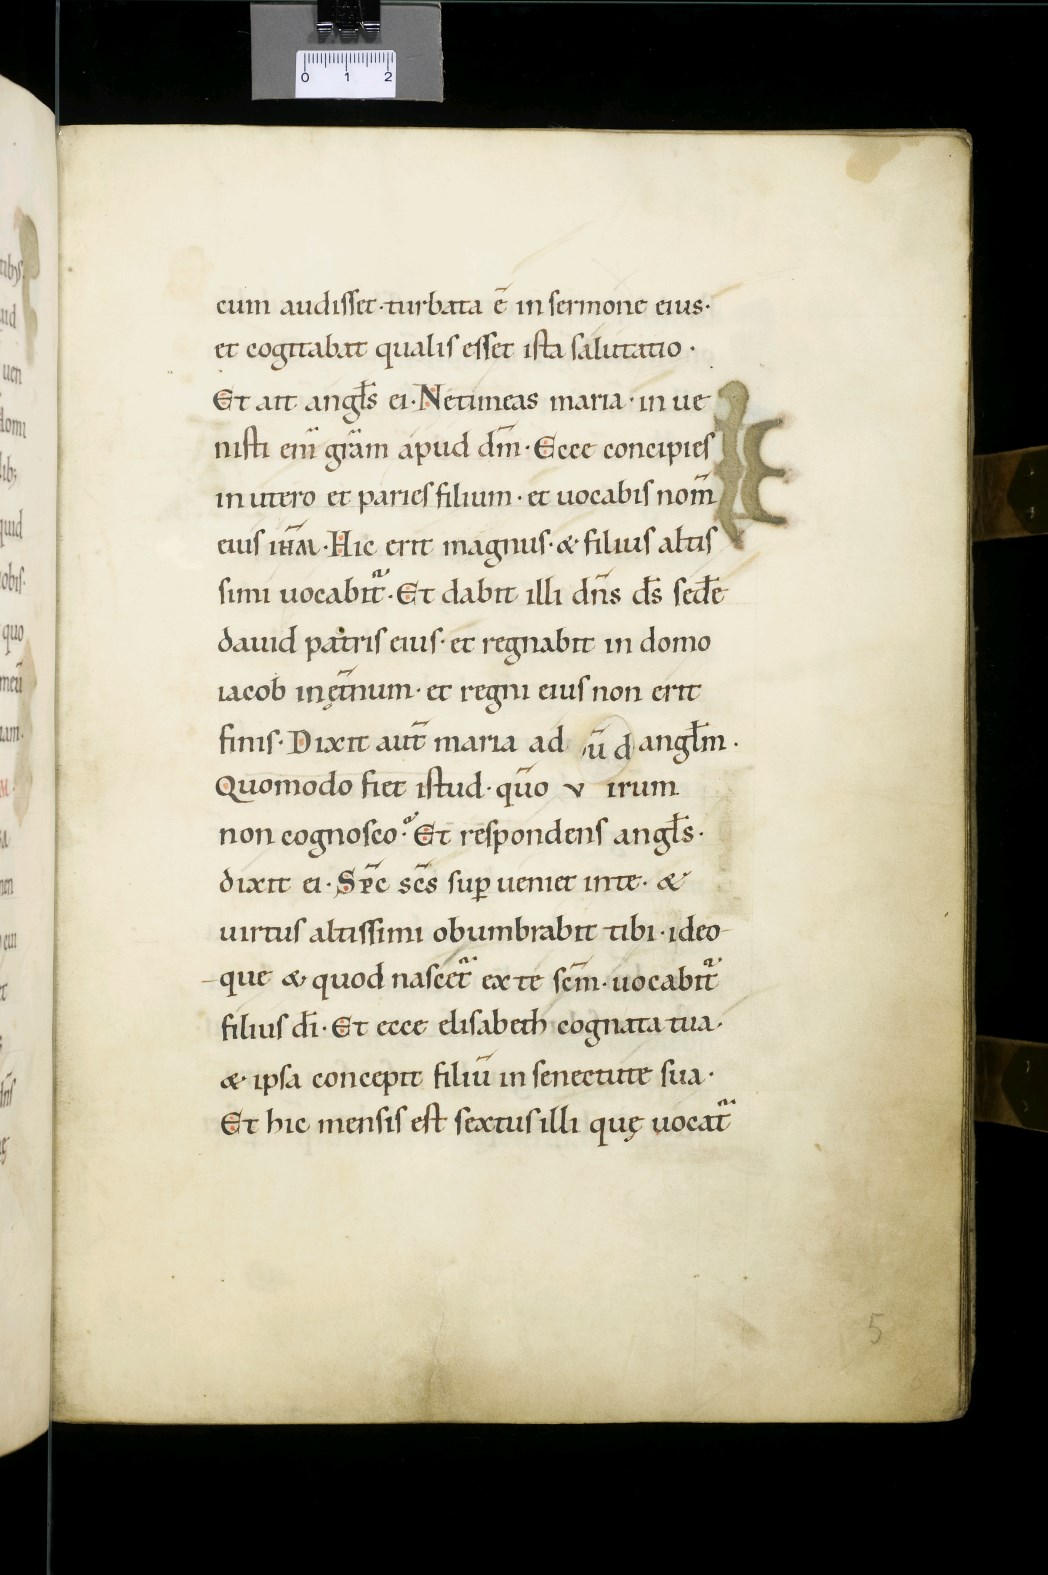 0 1 2
cum audisset·turbata ē in sermone eius·
et cogitabat qualis esset ista salutatio·
Et ait angl̄s ei·Ne timeas maria·in ue
nisti eni̅ gr̄am apud dm̄·Ecce concipies
in utero et paries filium·et uocabis nom̄
eius ih̄m·Hic erit magnus·& filius altis
simi uocabit᷑·Et dabit illi dn̄s ds̄ sedē
dauid patris eius·et regnabit in domo
iacob in et̄num·et regni eius non erit
finis·Dixit aut̄ maria ad ū d angl̄m·
Quomodo fiet istud·quō v irum
non cognosco? Et respondens angl̄s·
dixit ei·Sp̄c sc̄s sup̱ ueniet in te·&
uirtus altissimi obumbrabit tibi·ideo
que & quod nascet᷑ ex te sc̄m·uocabit᷑
filius dī·Et ecce elisabeth cognata tua·
& ipsa concepit filiū in senectute sua·
Et hic mensis est sextus illi quę uocat᷑
5